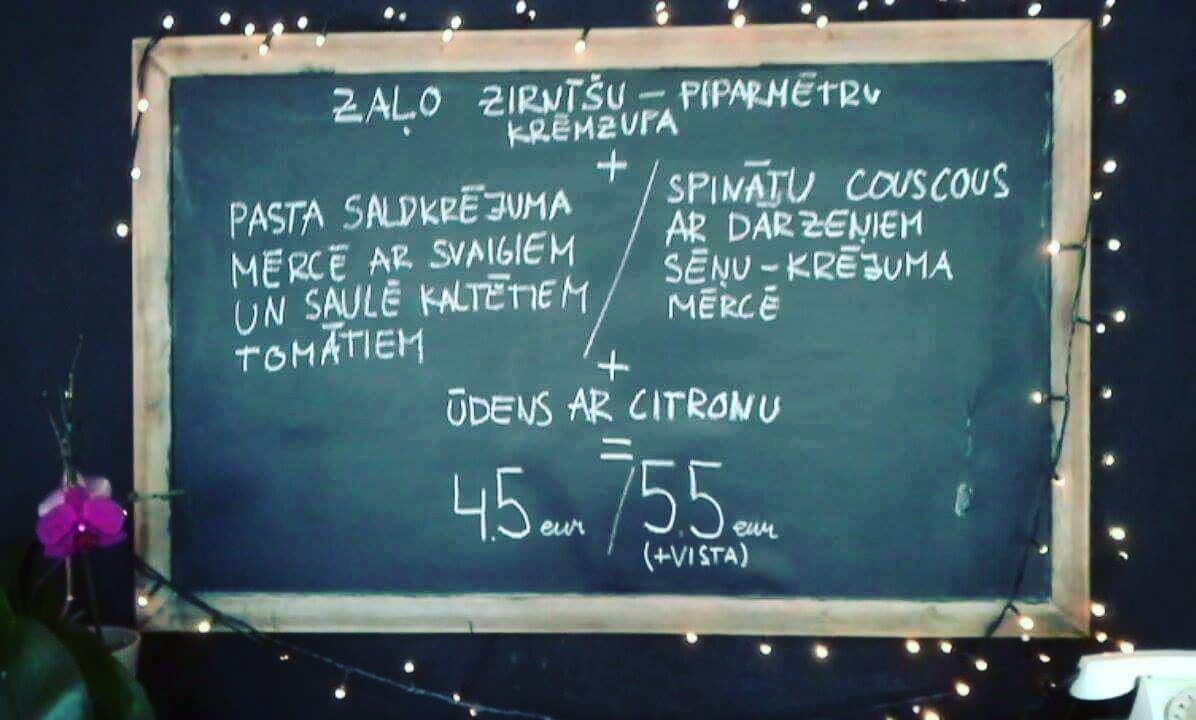 ZAĻO ZIRNĪŠU – PIPARMĒTRU
KRĒMZUPA
+
PASTA SALDKRĒJUMA
MĒRCĒ AR SVAIGIEM
UN SAULĒ KALTĒTIEM
TOMĀTIEM
/
SPINĀTU COUSCOUS
AR DĀRZEŅIEM
SĒŅU – KRĒJUMA
MĒRCĒ
+
ŪDENS AR CITRONU
=
4.5 eur / 5.5 eur
(+VISTA)